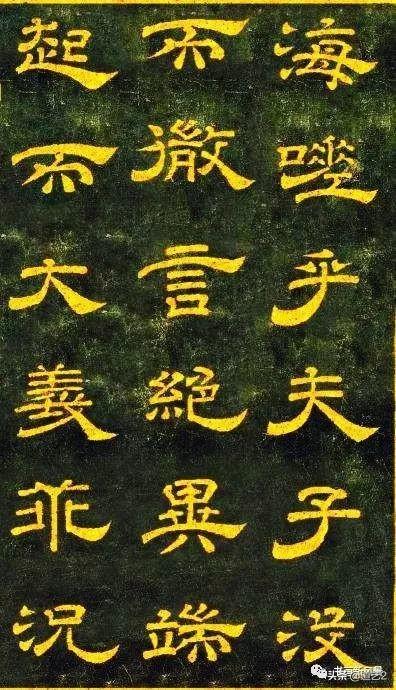 海嗟乎夫子没
而微言絕異端
起而大義乖況
头条